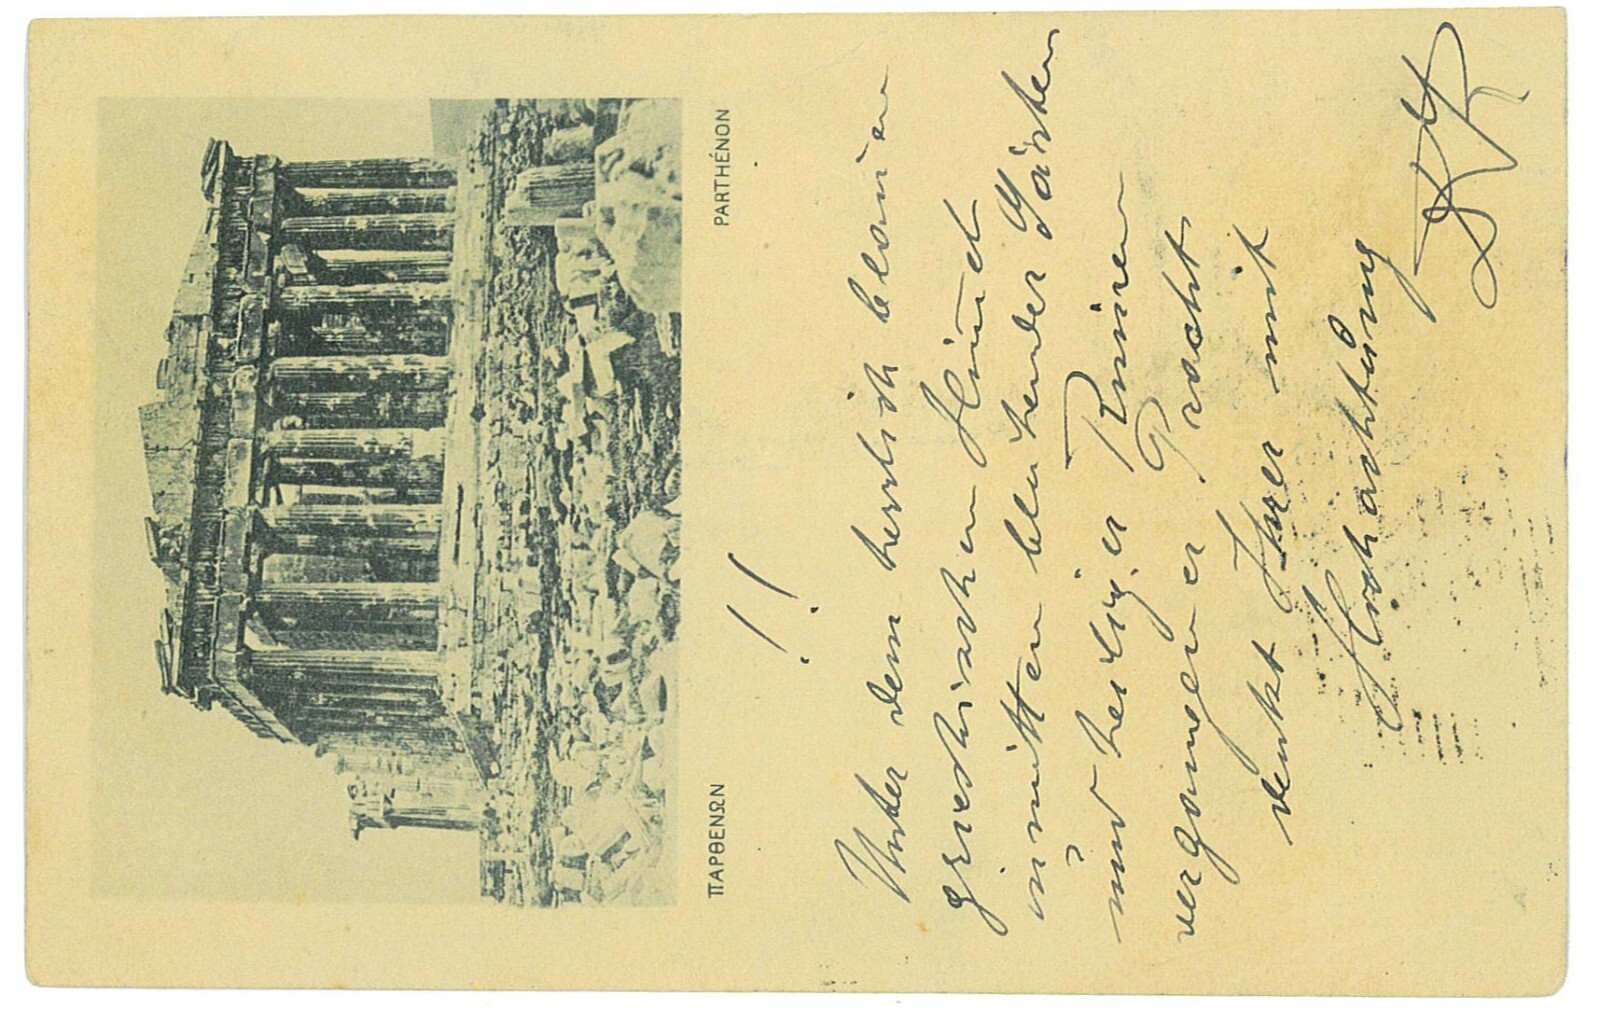 ΠΑΡΘΕΝΩΝ PARTHÉNON
! !
Unter dem herrlich blauen
griechischen Himmel
inmitten blühender Gärten
und heiliger Ruinen
vergangener Pracht
denkt Ihrer mit
Hochachtung